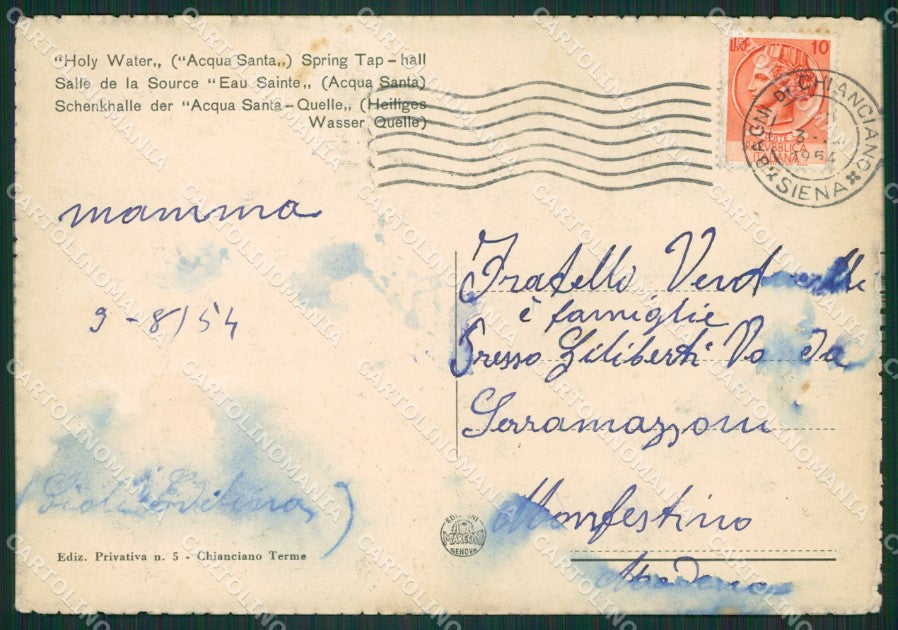 "Holy Water,, ("Acqua Santa,,) Spring Tap - hall
Salle de la Source "Eau Sainte,, (Acqua Santa)
Schenkhalle der "Acqua Santa - Quelle,, (Heiliges
Wasser Quelle)
LIRE 10
REPUBBLICA
ITALIANA
BAGNI DI CHIANCIANO
1954
SIENA
mamma
9 - 8/54
Fratello
è famiglie
Presso Giliberti
Serramazzoni
Monfestino
Modena
EDIZIONI
MARCONI
GENOVA
Ediz. Privativa n. 5 - Chianciano Terme
CARTOLINOMANIA